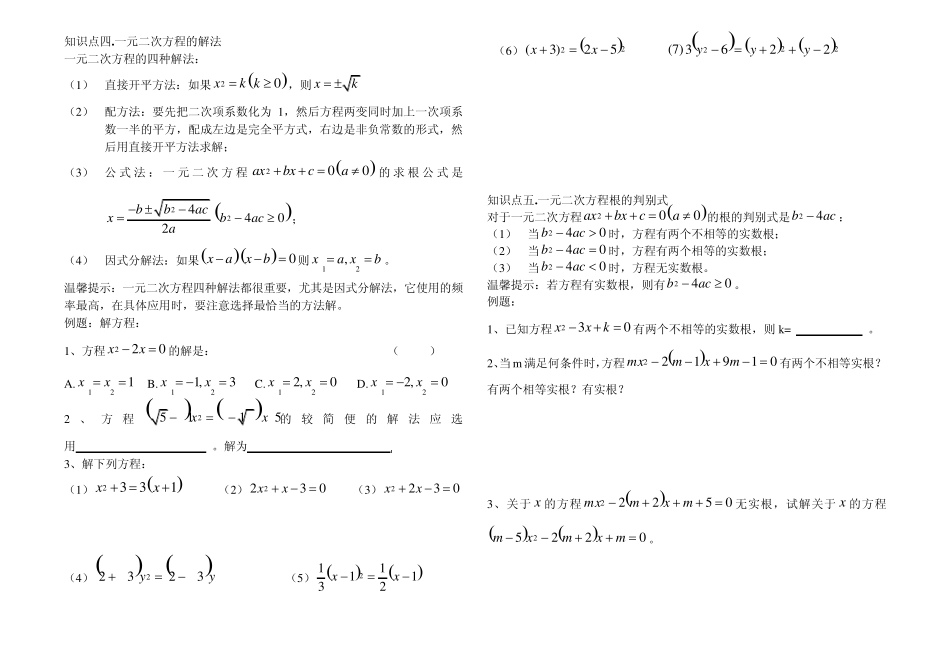 知识点四.一元二次方程的解法
一元二次方程的四种解法：
（1） 直接开平方法：如果 x2 = k (k ≥ 0)，则 x = ±√k
（2） 配方法：要先把二次项系数化为 1，然后方程两变同时加上一次项系
数一半的平方，配成左边是完全平方式，右边是非负常数的形式，然
后用直接开平方法求解；
（3） 公式法：一元二次方程 ax2 + bx + c = 0(a ≠ 0) 的求根公式是
x = (−b ± √(b2 − 4ac)) / 2a (b2 − 4ac ≥ 0)；
（4） 因式分解法：如果 (x − a)(x − b) = 0 则 x1 = a, x2 = b 。
温馨提示：一元二次方程四种解法都很重要，尤其是因式分解法，它使用的频
率最高，在具体应用时，要注意选择最恰当的方法解。
例题：解方程：
1、方程 x2 − 2x = 0 的解是： （ ）
A. x1 = x2 = 1 B. x1 = −1, x2 = 3 C. x1 = 2, x2 = 0 D. x1 = −2, x2 = 0
2、方程 (√5 − )x2 = ( − 1)x 5的较简便的解法应选
用 。解为 .
3、解下列方程：
（1）x2 + 3 = 3(x + 1) （2）2x2 + x − 3 = 0 （3）x2 + 2x − 3 = 0
（4）(2 + 3)y2 = (2 − 3)y （5）1/3 (x − 1)2 = 1/2 (x − 1)
（6）(x + 3)2 = (2x − 5)2 (7) 3(y2 − 6) = (y + 2)2 + (y − 2)2
知识点五.一元二次方程根的判别式
对于一元二次方程 ax2 + bx + c = 0(a ≠ 0)的根的判别式是 b2 − 4ac；
（1） 当 b2 − 4ac > 0 时，方程有两个不相等的实数根；
（2） 当 b2 − 4ac = 0 时，方程有两个相等的实数根；
（3） 当 b2 − 4ac < 0 时，方程无实数根。
温馨提示：若方程有实数根，则有 b2 − 4ac ≥ 0 。
例题：
1、已知方程 x2 − 3x + k = 0 有两个不相等的实数根，则 k= 。
2、当 m 满足何条件时，方程 mx2 − 2(m − 1)x + 9m − 1 = 0 有两个不相等实根？
有两个相等实根？有实根？
3、关于 x 的方程 mx2 − 2(m + 2)x + m + 5 = 0 无实根，试解关于 x 的方程
(m − 5)x2 − 2(m + 2)x + m = 0 。